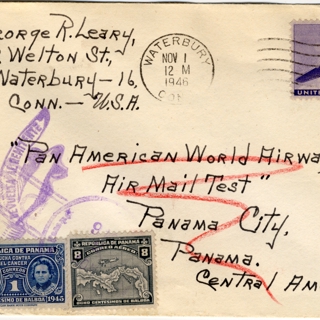 George R. Leary,
Welton St.,
Waterbury-16,
Conn.-U.S.A.
WATERBURY
NOV 1
12 M
1946
CONN.
UNITED
"Pan American World Airway
Air Mail Test"
Panama City,
Panama.
Central Am
REPUBLICA DE PANAMA
8 CORREO AEREO 8
OCHO CENTESIMOS DE BALBOA
LICA DE PANAMA
UCHA CONTRA
EL CANCER
CORREOS
1 1
ESIMO DE BALBOA 1945